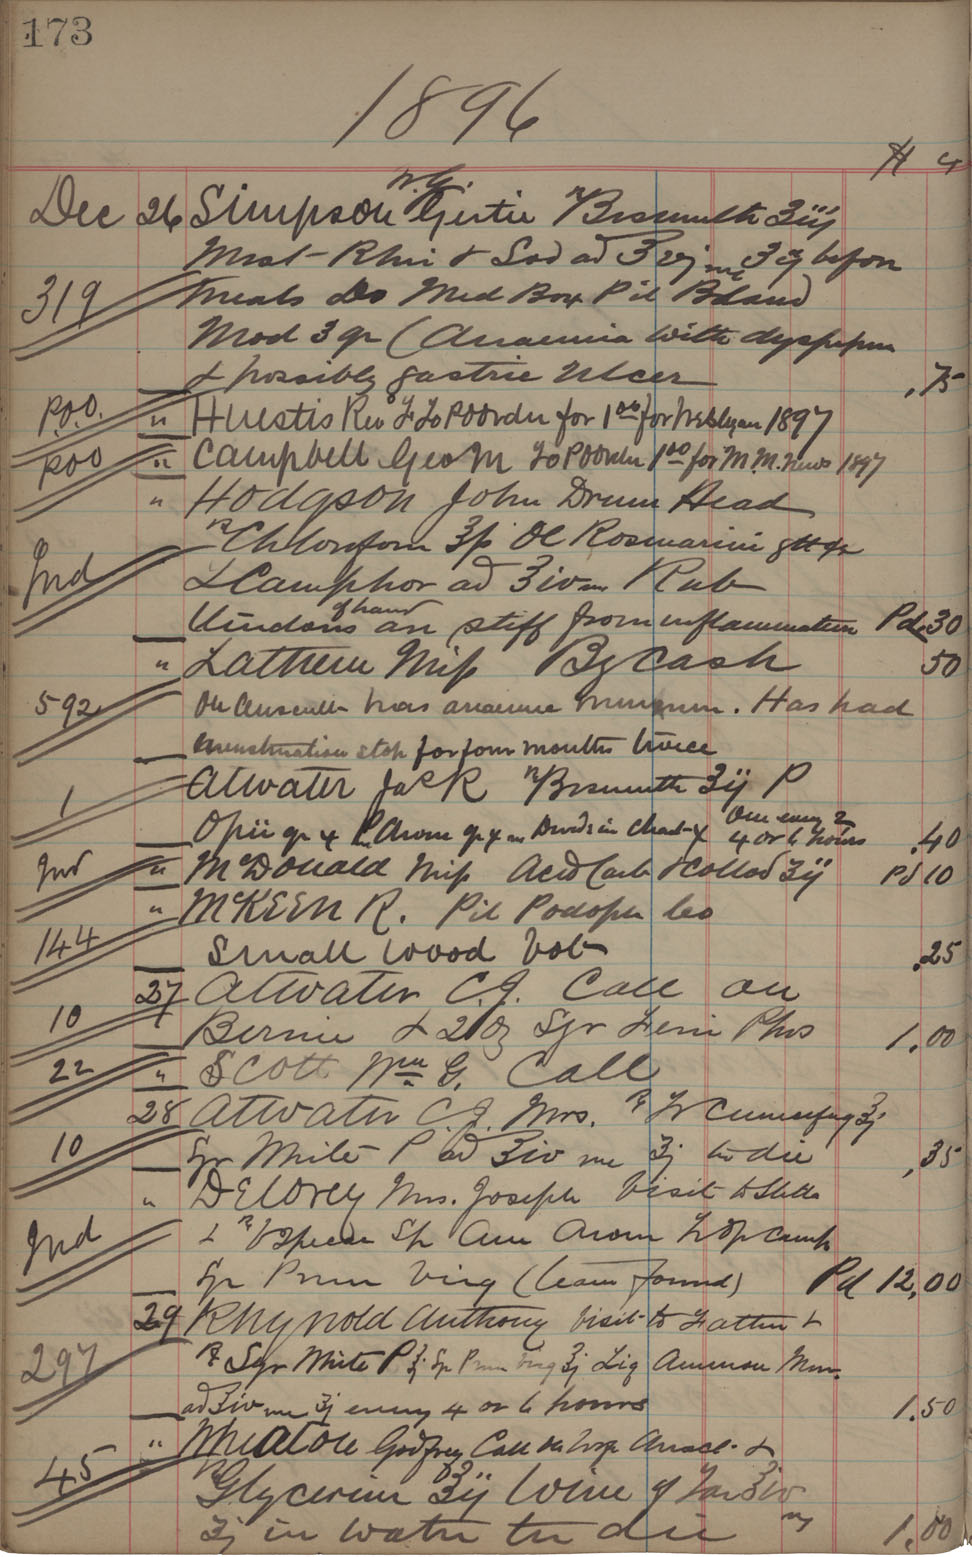 173
1896
$ c
W.G.
Dec 26 Simpson Gertie ℞ Bismuth ʒiij
Mist Rhei & Sod ad ℥vj ʒij before
319 meals Do Med Box Pil Bland
Mod 3 gr (Anaemia with dyspepsia
& possibly gastric ulcer .75
P.O.O. " Huestis Rev To POOrder for 1.00 for Wesleyan 1897
POO " Campbell Geo M To POOrder 1.00 for M.M. News 1897
" Hodgson John Drum Head
℞ Chloroform Ol Rosmarini
Ind & Camphor ad ℥iv Rub
of hand
Tendons are stiff from inflammation Pd .30
" Latten Miss By Cash 50
592 murmur. Has had
menstruation stop for four months twice
1 Atwater Jack ℞ Bismuth ʒij P
Opii gr x P. Arom gr x Divide in Chart X One every 2
4 or 6 hours .40
Ind " McDonald Miss Acid Carb & Collod ʒij Pd 10
" McKeen R. Pil Podoph Co
144 small wood bot .25
27 Atwater C.J. Call on
10 Bernie & 2 oz Syr Ferri Phos 1.00
22 " Scott Wm G. Call
28 Atwater C.J. Mrs. ℞
10 Syr White P ad ℥iv ʒj ter die .35
" Delorey Mrs. Joseph Visit to
Ind & ℞ Sp Am Arom Tr Op Camph
Syr Prun Virg (team found) Pd 12.00
29 Rhynold Anthony Visit to Father &
297 ℞ Syr White P Syr Prun Virg Liq Ammon
ad ℥iv ʒj every 4 or 6 hours 1.50
" Wheaton Godfrey Call &
45 Glycerin ℥ij Wine of Tar ℥iv
ʒj in water ter die 1.00